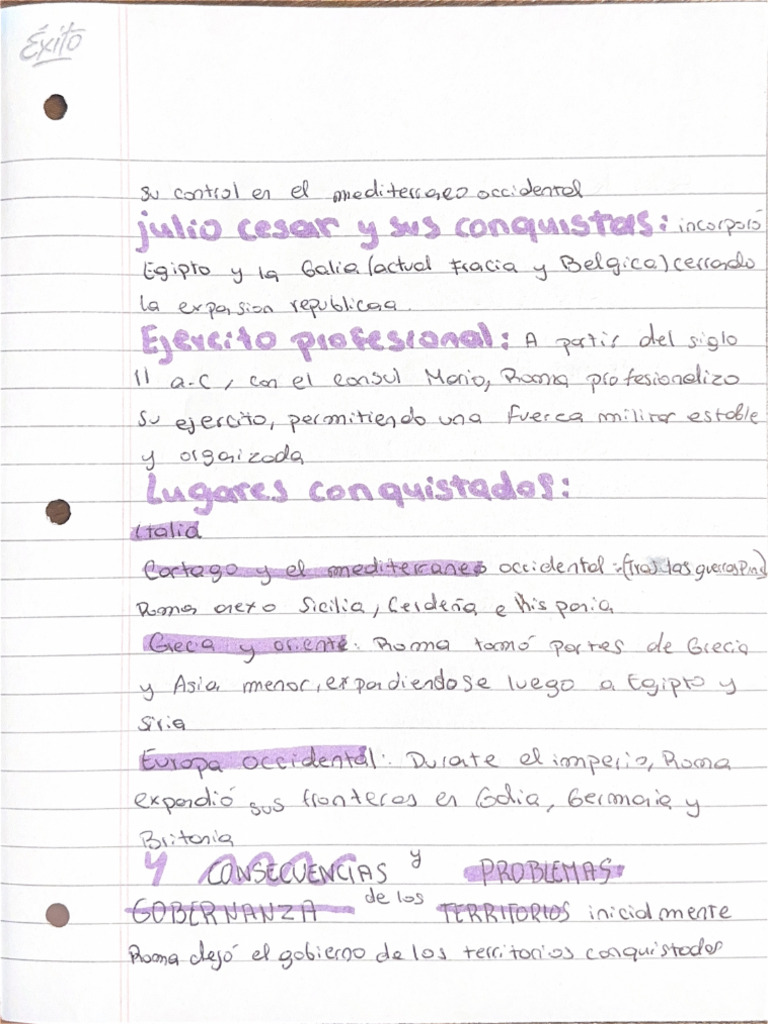 Éxito
su control en el mediterraeo occidental
julio cesar y sus conquistas: incorporó
Egipto y la Galia (actual Fracia y Belgica) cerrando
la expansion republicaa.
Ejercito profesional: A partir del siglo
II a.C, con el consul Mario, Roma profesionalizo
su ejercito, permitiendo una fuerca militar estable
y orgaizada
Lugares conquistados:
Italia
Cartago y el mediterraneo occidental: (tras las guerras Pun)
Roma anexo Sicilia, Cerdeña e hispania
Grecia y oriente: Roma tomó partes de Grecia
y Asia menor, expandiendose luego a Egipto y
Siria
Europa occidental: Durate el imperio, Roma
expandió sus fronteras en Galia, Germania y
Britania
y CONSECUENCIAS y PROBLEMAS
GOBERNANZA de los TERRITORIOS inicialmente
Roma dejó el gobierno de los territorios conquistados